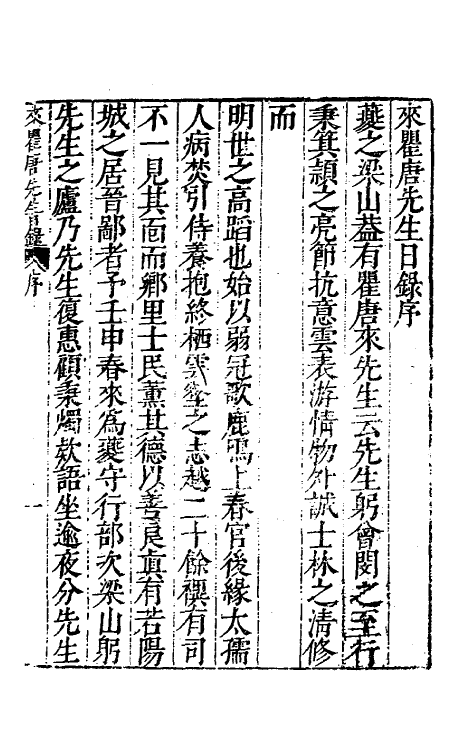 來瞿唐先生日錄序
夔之梁山葢有瞿唐來先生云先生躬曾閔之至行
秉箕頴之亮節抗意雲表游情物外誠士林之淸修
而
明世之高蹈也始以弱冠歌鹿鳴上春官後緣太孺
人病焚引侍養抱終栖雲壑之志越二十餘禩有司
不一見其面而鄉里士民薰其德以善良眞有若陽
城之居晉鄙者予壬申春來爲夔守行部次梁山躬
先生之廬乃先生復惠顧秉燭欵語坐逾夜分先生
來瞿唐先生日錄 序 一